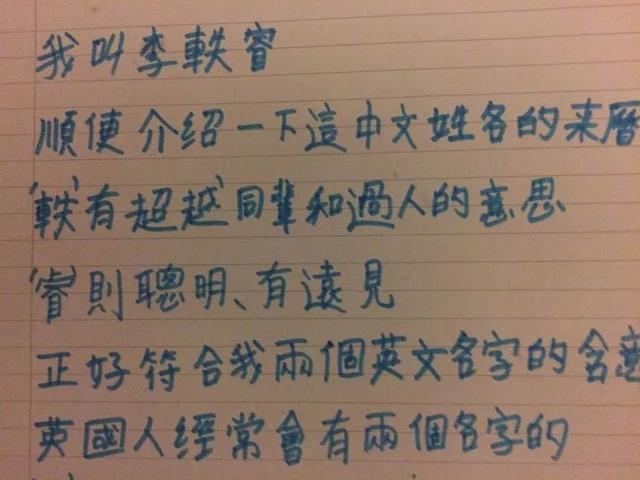 我叫李軼睿
順便介绍一下這中文姓名的来曆
'軼'有'超越'同輩和過人的意思
'睿'則聰明、有遠見
正好符合我兩個英文名字的含意
英國人經常會有兩個名字的